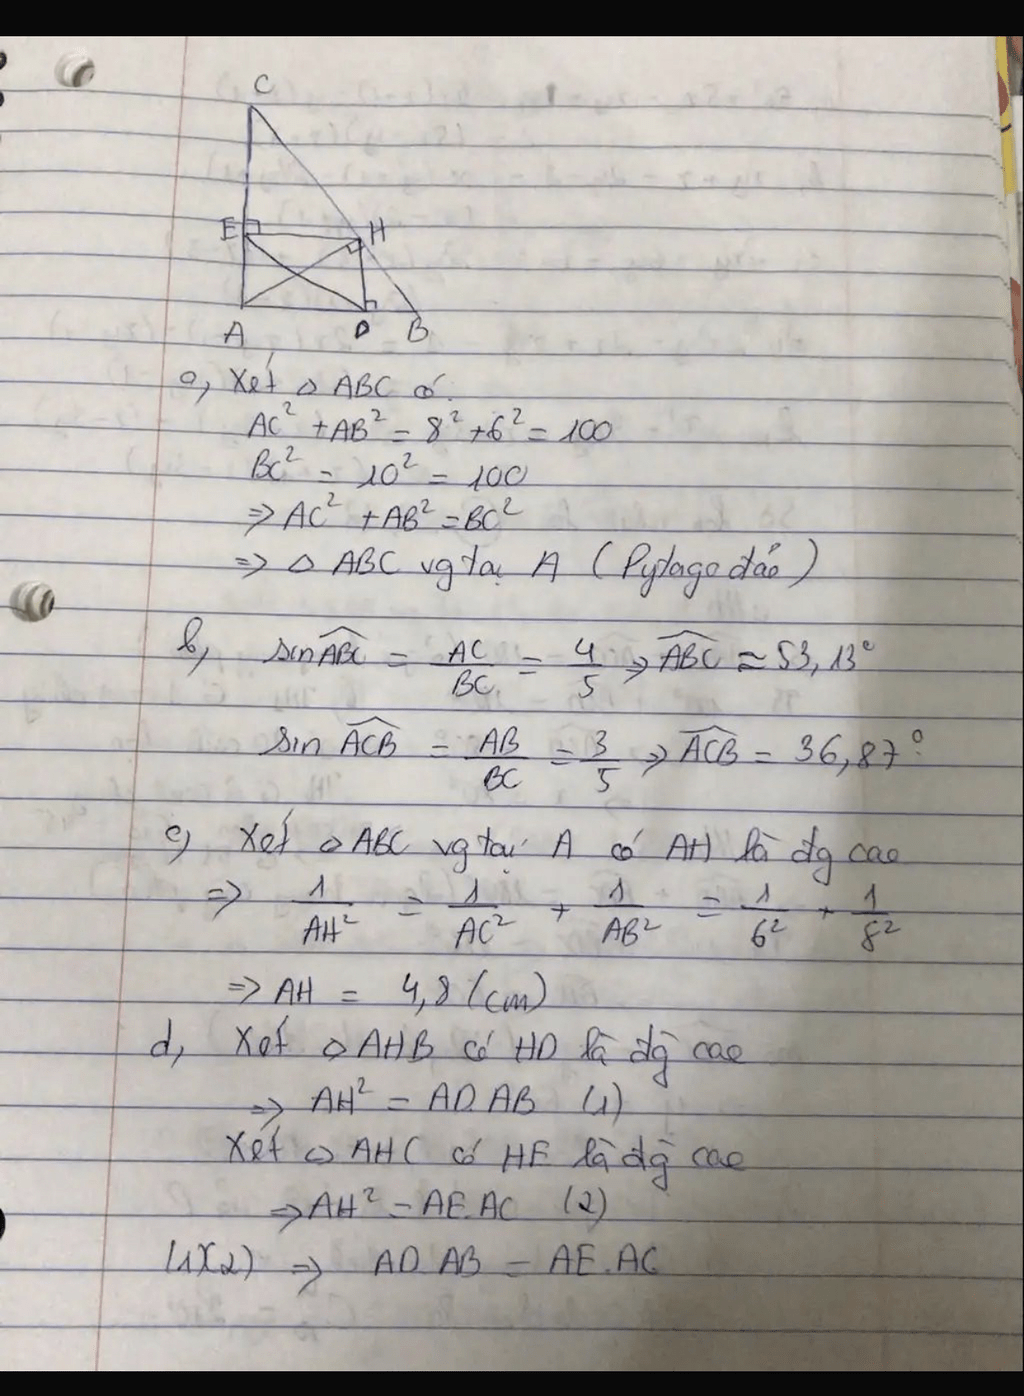 C
E H
A D B
a, Xét △ ABC có
AC² + AB² = 8² + 6² = 100
BC² = 10² = 100
=> AC² + AB² = BC²
=> △ ABC vg tại A (Pytago đảo)
b, sin ABC = AC/BC = 4/5 => ABC ≈ 53,13°
sin ACB = AB/BC = 3/5 => ACB = 36,87°
c, Xét △ ABC vg tại A có AH là đg cao
=> 1/AH² = 1/AC² + 1/AB² = 1/6² + 1/8²
=> AH = 4,8 (cm)
d, Xét △ AHB có HD là đg cao
=> AH² = AD.AB (1)
Xét △ AHC có HE là đg cao
=> AH² = AE.AC (2)
(1)(2) => AD.AB = AE.AC